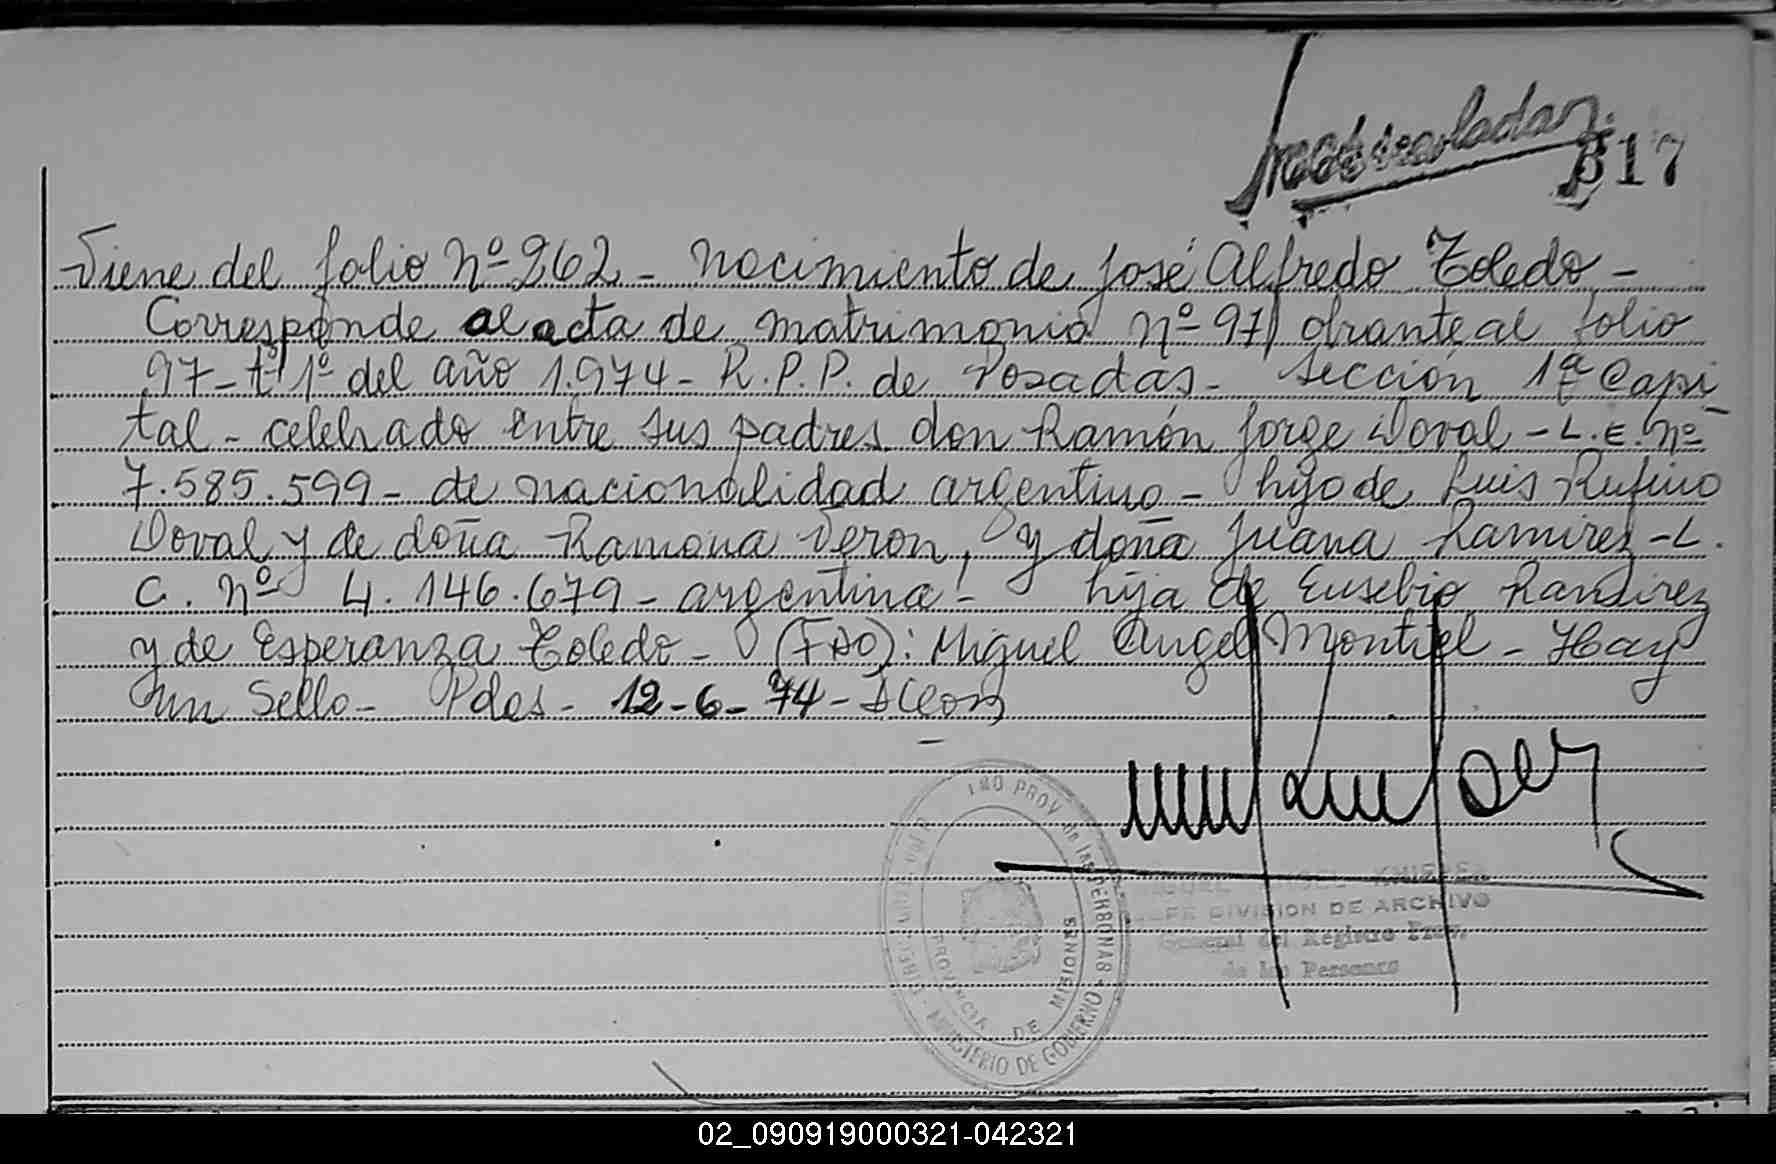 317
Viene del folio Nº 262 - Nacimiento de José Alfredo Toledo -
Corresponde al acta de matrimonio Nº 97, obrante al folio
97 - tº 1º del año 1.974 - R.P.P. de Posadas - Sección 1ª Capi
tal - celebrado entre sus padres don Ramón Jorge Doval - L.E. Nº
7.585.599 - de nacionalidad argentino - hijo de Luis Rufino
Doval y de doña Ramona Veron, y doña Juana Ramirez - L.
C. Nº 4.146.679 - argentina - hija de Eusebio Ramirez
y de Esperanza Toledo - (FDO): Miguel Angel Montiel - Hay
un Sello - Pdas - 12-6-74 -
PROV de las PERSONAS
MINISTERIO DE GOBIERNO
PROVINCIA DE MISIONES
DIVISION DE ARCHIVO
General del Registro Prov.
de las Personas
02_090919000321-042321